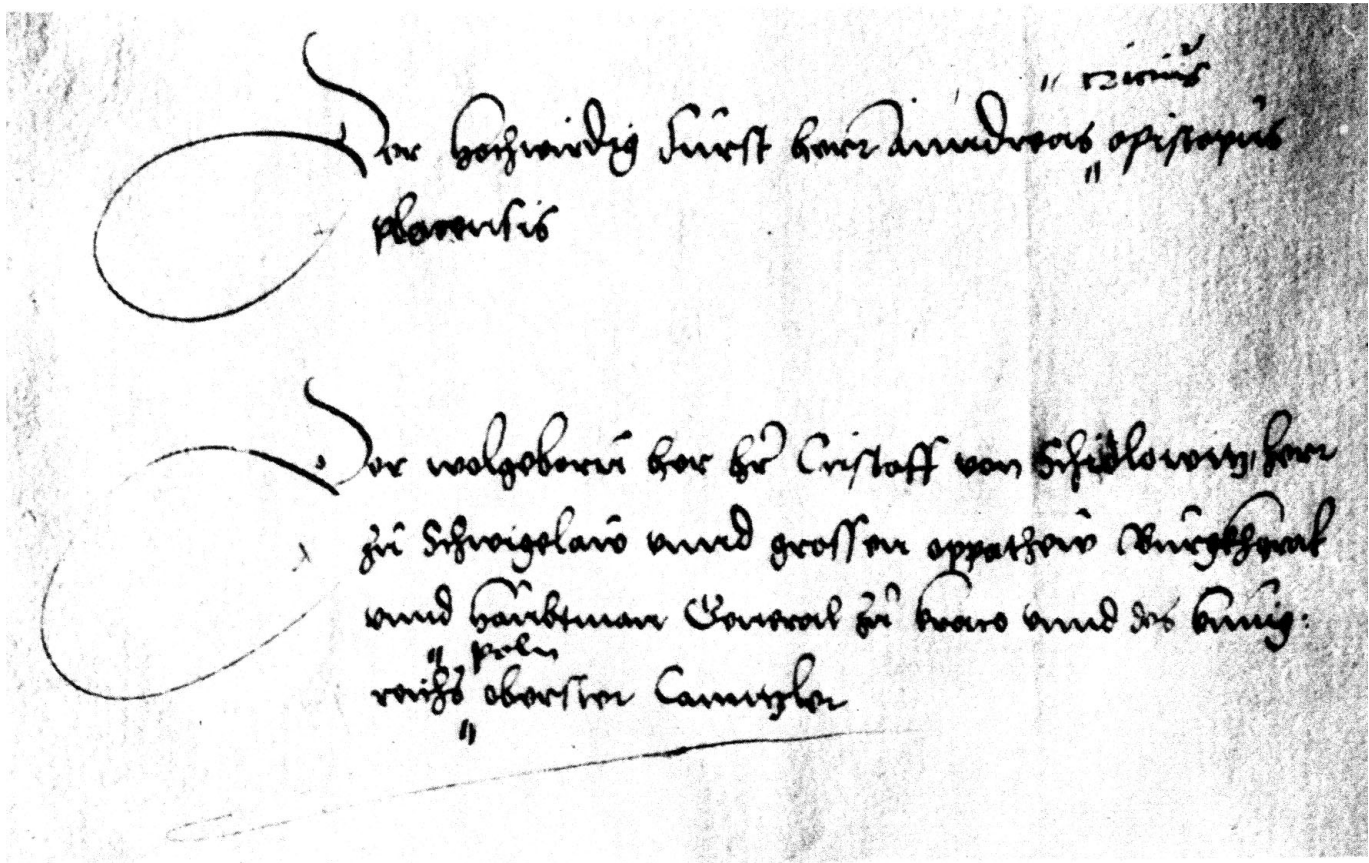 " cricius
Der Hochwirdig Fürst herr Anndreas " episcopus
plocensis
Der wolgeborn her hr Cristoff von Schidlowitz, herr
zu Schmigelaw vnnd grossen oppathew Burgkhgraf
vnnd haubtman General zu kraco vnnd des kunig:
" poln
reichs " oberster Canntzler